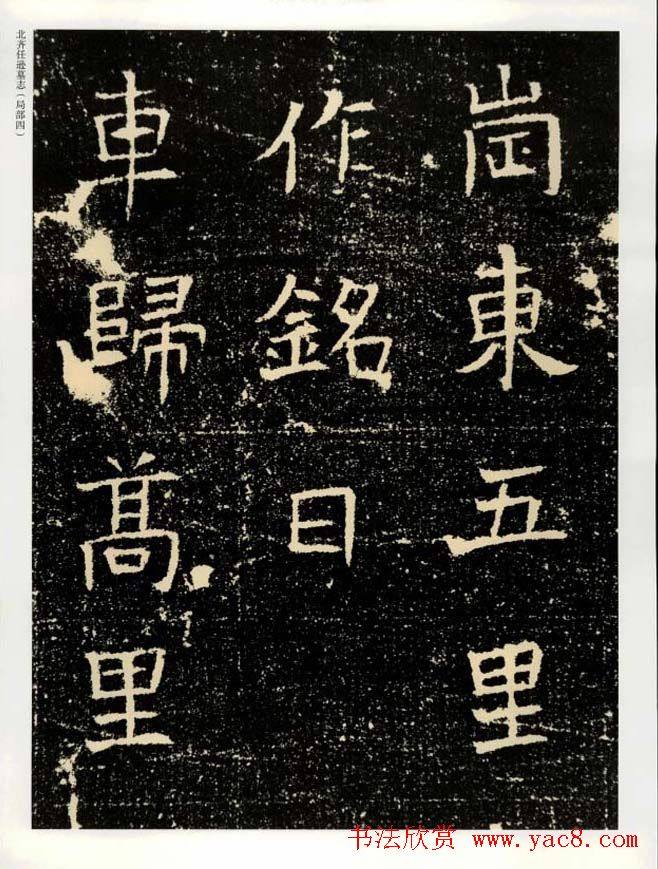 北齐任逊墓志（局部四）
崗東五里
作銘曰
車歸髙里
书法欣赏 www.yac8.com